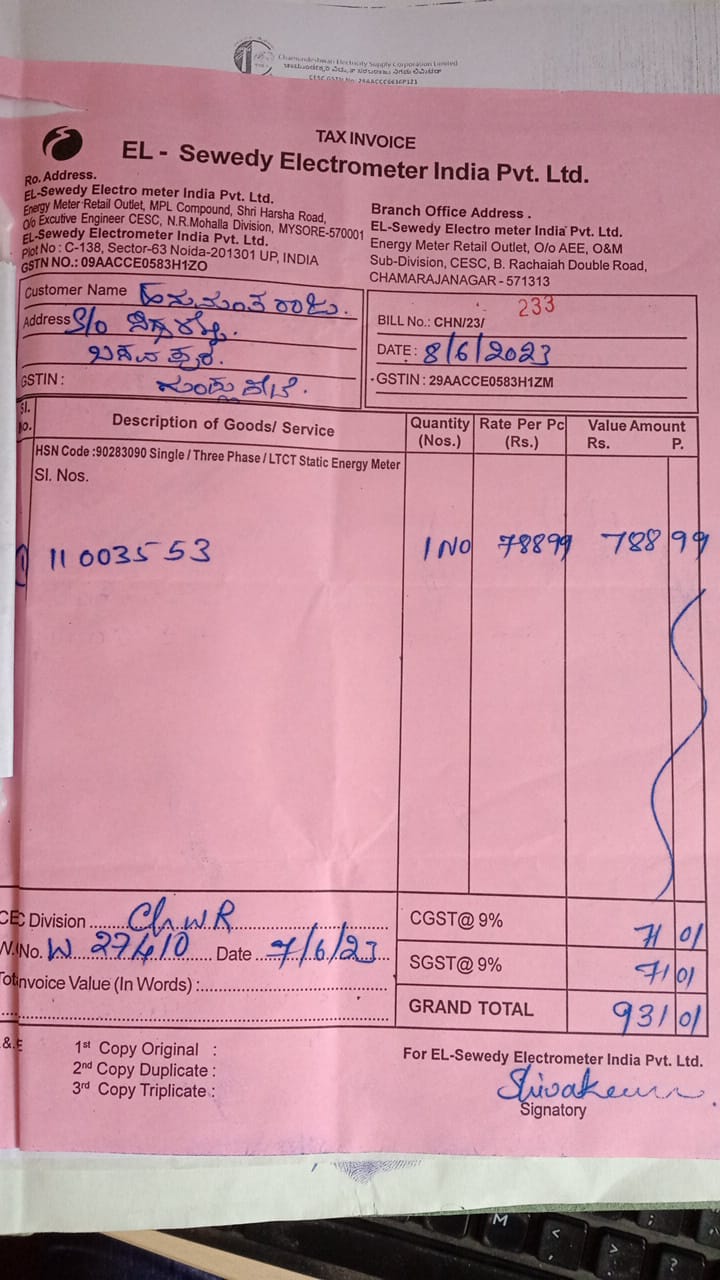 Chamundeshwari Electricity Supply Corporation Limited
ಚಾಮುಂಡೇಶ್ವರಿ ವಿದ್ಯುತ್ ಸರಬರಾಜು ನಿಗಮ ನಿಯಮಿತ
CESC GSTN No:
TAX INVOICE
EL - Sewedy Electrometer India Pvt. Ltd.
Ro. Address.
EL-Sewedy Electro meter India Pvt. Ltd.
Energy Meter Retail Outlet, MPL Compound, Shri Harsha Road,
O/o Excutive Engineer CESC, N.R.Mohalla Division, MYSORE-570001
EL-Sewedy Electrometer India Pvt. Ltd.
Plot No : C-138, Sector-63 Noida-201301 UP, INDIA
GSTN NO.: 09AACCE0583H1ZO
Branch Office Address .
EL-Sewedy Electro meter India Pvt. Ltd.
Energy Meter Retail Outlet, O/o AEE, O&M
Sub-Division, CESC, B. Rachaiah Double Road,
CHAMARAJANAGAR - 571313
Customer Name ಹನುಮಂತ ರಾಜು.
Address S/o
ಬಸವ ಪುರ.
GSTIN :
BILL No.: CHN/23/ 233
DATE : 8/6/2023
GSTIN : 29AACCE0583H1ZM
Sl. No. Description of Goods/ Service Quantity (Nos.) Rate Per Pc (Rs.) Value Amount Rs. P.
HSN Code :90283090 Single / Three Phase / LTCT Static Energy Meter
Sl. Nos.
1 11 003553 1 No 78899 788 99
Division ChWR
No. W 27410 Date 7/6/23
Invoice Value (In Words) :
CGST@ 9% 71 01
SGST@ 9% 71 01
GRAND TOTAL 931 01
1st Copy Original :
2nd Copy Duplicate :
3rd Copy Triplicate :
For EL-Sewedy Electrometer India Pvt. Ltd.
Signatory
M